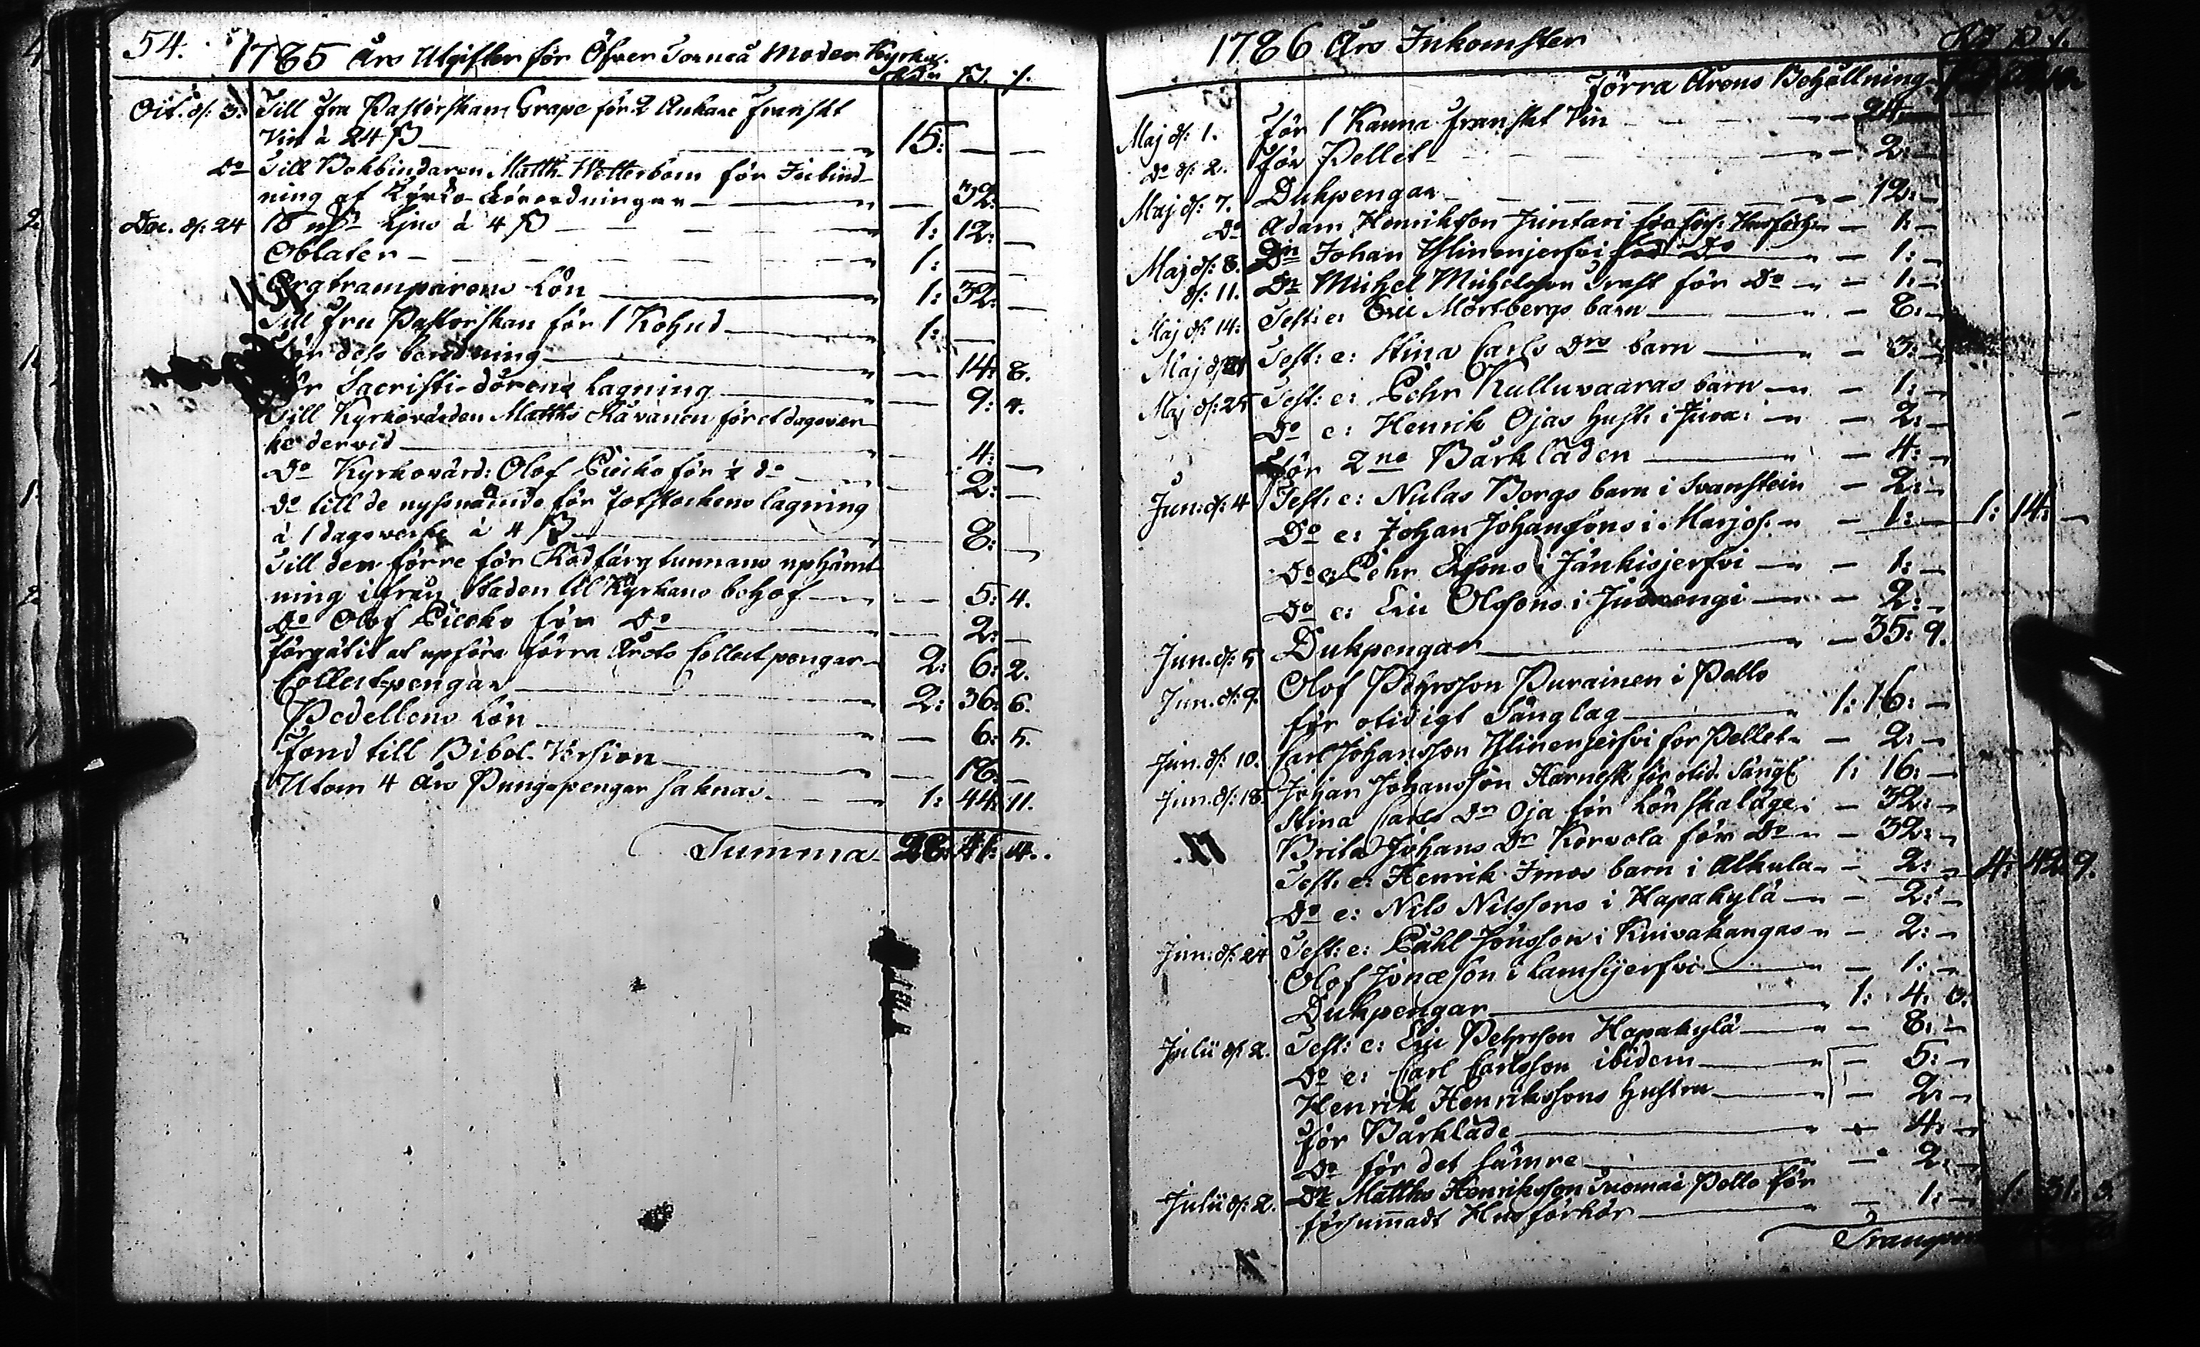 54. 1785 Års Utgifter för Öfver Torneå Moder Kyrka.
Rdr ß. r.
Oct. d: 3. Till fru Pastorskan Grape för 2 Ankare franskt
Vin à 24 ß 15: — —
Do Till Bokbindaren Matth. Wetterbom för Inbind-
ning af Kyrko-Förordningar — 32: —
Dec. d: 24 15 Ljus à 4 ß 1: 12: —
Oblater 1: — —
Orgtramparens Lön 1: 32: —
Till fru Pastorskan för 1 Kohud 1: —
dess beredning — 14: 8.
Sacristi-dörens lagning — 9: 4.
Till Kyrkovärden Matths Kavanen för et dagsver-
ke dervid — 4: —
Do Kyrkovärd: Olof för ½ do — 2: —
Do till de nyssnämde för fotstockens lagning
à 1 dagsverke à 4 ß — 8: —
Till den förre för Rödfärg tunnans uphämt-
ning ifrån Staden til Kyrkans behof — 5: 4.
Do Olof för Do — 2: —
förgätit at upföra förra Årets Collectpengar 2: 6: 2.
Collectpengar 2: 36: 6.
Pedellens Lön — 6: 5.
fond till Bibel-Version — 16: —
Utom 4 års Pungpengar saknas 1: 44: 11.
Summa 28: 41: 4.
1786 Års Inkomster
Rd ß r.
Förra Årens Behållning
Maj d: 1. för 1 Kanna franskt Vin — 24: —
Do d: 2. för Pellet — 2: —
Maj d: 7. Dukpengar — 12: —
Do Adam Henrikson Juntari för förs: Husförhör — 1: —
Maj d: 8. Dn Johan Ylinenjerfvi för Do — 1: —
d: 11. Dn Michel Michelsson för Do — 1: —
Maj d: 14: Test: e: Eric Mörtbergs barn — 8: —
Maj d: 21 Test: e: Stina Carls Drs barn — 3: —
Maj d: 25 Test: e: Pehr Kulluvaaras barn — 1: —
Do e: Henrik Ojas hust: i — 2: —
för 2ne Bårkläden — 4: —
Jun: d: 4 Test: e: Niclas Borgs barn i Svanstein — 2: —
Do e: Johan Johanssons i Marjos: — 1: — 1: 14: —
Do e: Pehr i Jänkisjerfvi — 1: —
Do e: Eric Olssons i Juoxengi — 2: —
Jun. d: 5 Dukpengar — 35: 9.
Jun. d: 9. Olof Pehrsson Purainen i Pello
för otidigt Sänglag 1: 16: —
Jun. d: 10. Carl Johansson Ylinenjerfvi för Pellet — 2: —
Jun. d: 18. Johan Johansson Harnesk för otid. Sängl. 1: 16: —
Stina Carls Dr Oja för Lönskaläge: — 32: —
Brita Johans Dr Korvola för Do — 32: —
Test: e: Henrik barn i Alkula — 2: — 4: 42: 9.
Do e: Nils Nilssons i Hapakylä — 2: —
Jun: d: 24 Test: e: Påhl Jönsson i Kuivakangas — 2: —
Olof Jonæson i Lamsijerfvi — 1: —
Dukpengar 1: 4: 3.
Julii d: 2. Test: e: Eric Pehrsson Hapakylä — 8: —
Do e: Carl Carlsson ibidem — 5: —
Henrik Henrikssons hustru — 2: —
för Bårkläde — 4: —
Do för det sämre — 2: —
Julii d: 2. Dn Matths Henriksson i Pello för
försummadt Husförhör — 1: — 1: 31: 3.